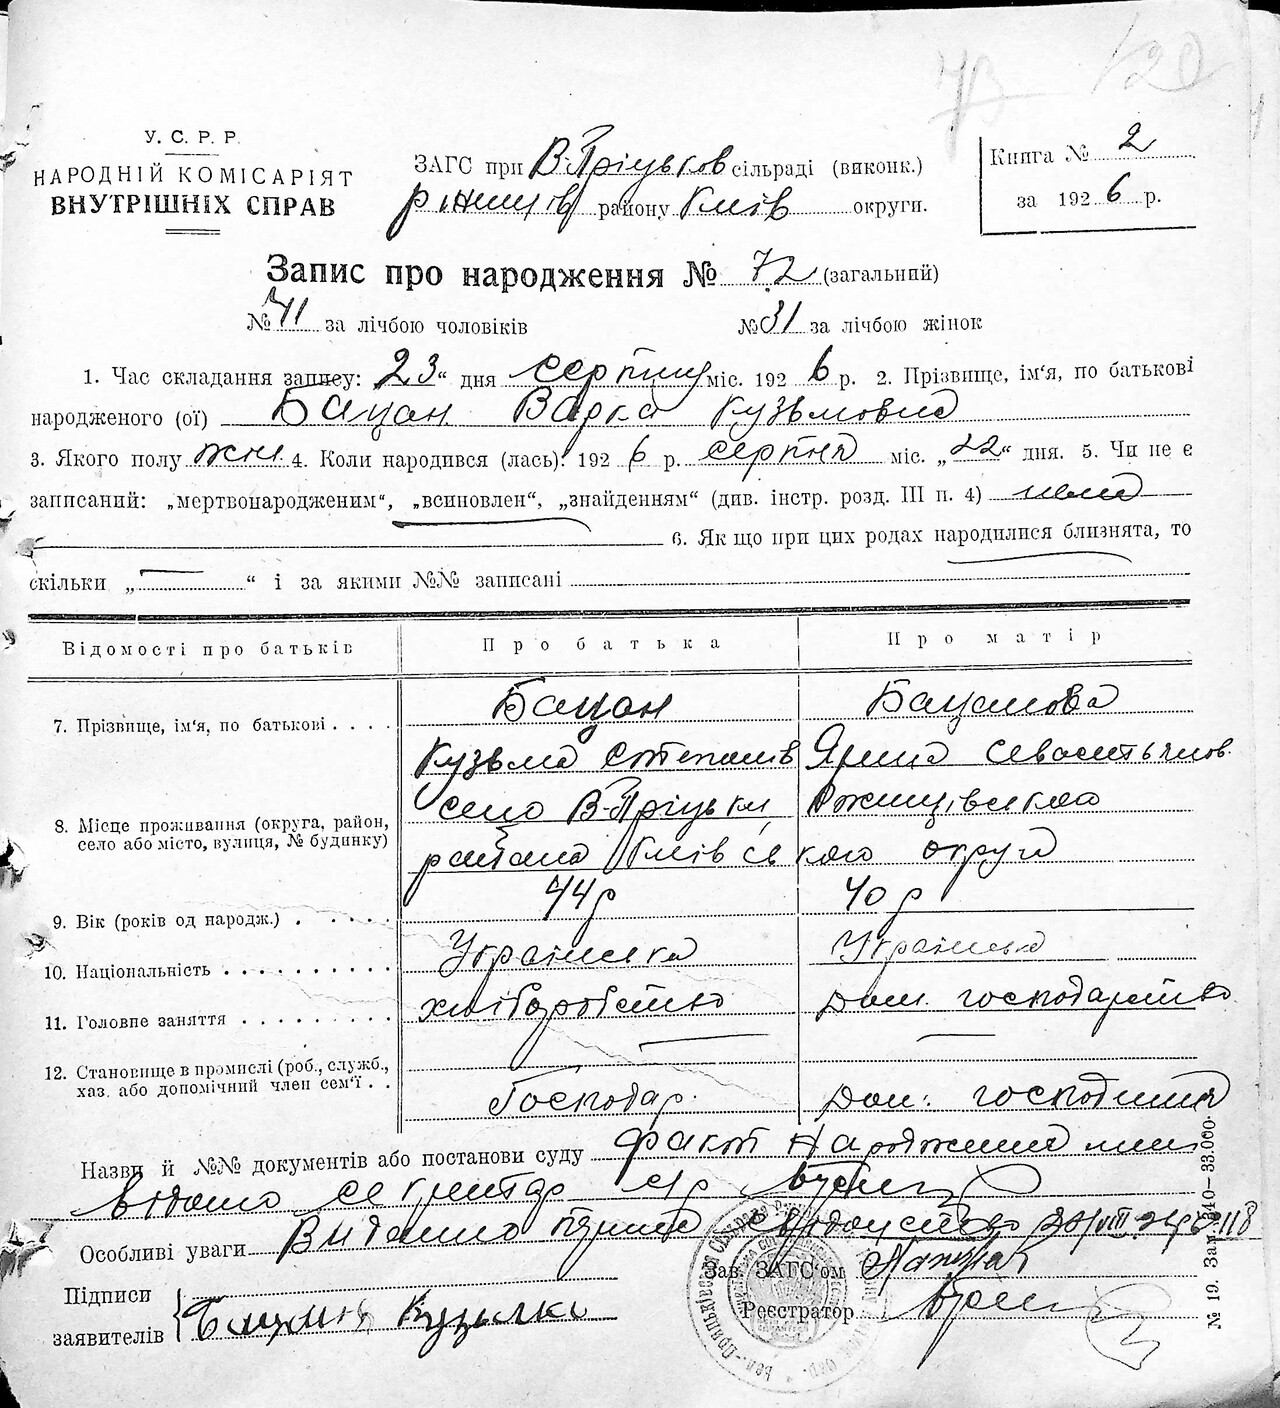 120
У. С. Р. Р.
НАРОДНІЙ КОМІСАРІЯТ
ВНУТРІШНІХ СПРАВ
ЗАГС при В-Пріцьков сільраді (виконк.)
району Київ округи.
Книга № 2
за 1926 р.
Запис про народження № 72 (загальний)
№ 41 за лічбою чоловіків № 31 за лічбою жінок
1. Час складання запису: 23 “ дня серпня міс. 1926 р. 2. Прізвище, ім‘я, по батькові
народженого (ої) Бацан Варка Кузьмовна
3. Якого полу жін 4. Коли народився (лась): 1926 р. серпня міс. „22“ дня. 5. Чи не є
записаний: „мертвонародженим“, „всиновлен“, „знайденням“ (див. інстр. розд. III п. 4) нема
6. Як що при цих родах народилися близнята, то
скільки „ — “ і за якими №№ записані
Відомості про батьків Про батька Про матір
7. Прізвище, ім‘я, по батькові . . . . Бацан Бацанова
Кузьма Степанів Ярина Севастьянов.
8. Місце проживання (округа, район, село або місто, вулиця, № будинку) село В-Пріцьки, Ржищівського
района Київського округа
9. Вік (років од народж.) . . . . . 44 р 40 р
10. Національність . . . . . . . . . . Українська Українська
11. Головне заняття . . . . . . . . . хліборобство Дом. господарство
12. Становище в промислі (роб., служб., хаз. або допомічний член сем‘ї . . Господар. Дом. господиня
Назви й №№ документів або постанови суду Факт народження
видано секретар с/р
Особливі уваги Видано свідоцтво 118
Підписи
заявителів Бацан Кузьма
Зав. ЗАГС‘ом
Реєстратор
№ 19. Зам. 33.000.